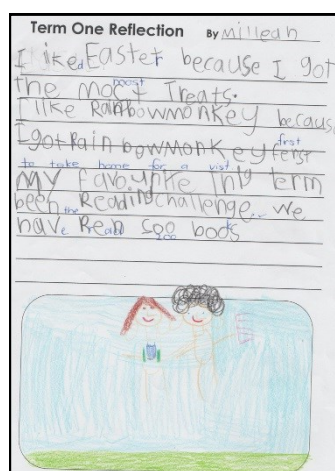 Term One Reflection By Milleah
I iked Easter because I got
boost
the moct Treats.
I like Rainbowmonkey becaus
first
I got Rain bowmonkey ferst
to take home for a visit
My favounke thig term
been the Reading challenge. We
have Read 500 books
200